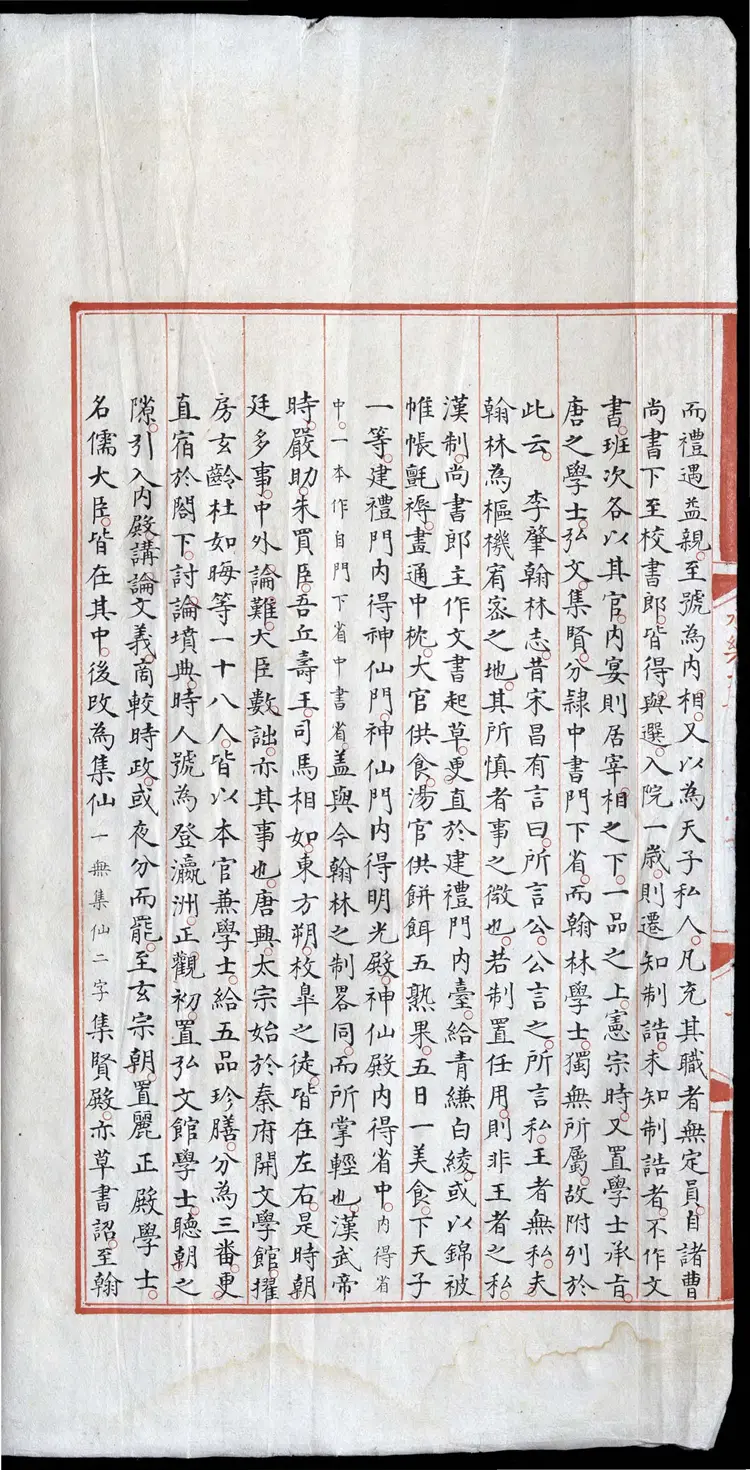 而禮遇益親。至號為内相。又以為天子私人。凡充其職者無定員。自諸曹
尚書下至校書郎。皆得與選。入院一歳。則遷知制誥。未知制誥者。不作文
書。班次各以其官。内宴則居宰相之下。一品之上。憲宗時。又置學士承旨。
唐之學士。弘文集賢。分隷中書門下省。而翰林學士。獨無所屬。故附列於
此云。 李肇翰林志。昔宋昌有言曰。所言公。公言之。所言私。王者無私。夫
翰林為樞機宥宻之地。其所慎者事之微也。若制置任用。則非王者之私。
漢制。尚書郎主作文書起草。更直於建禮門内臺。給青縑白綾。或以錦被
帷帳氈褥。畫通中枕。大官供食。湯官供餅餌五熟果。五日一美食。下天子
一等。建禮門内得神仙門。神仙門内得明光殿。神仙殿内得省中。内得省
中。一本作自門下省中書省。盖與今翰林之制畧同。而所掌輕也。漢武帝
時。嚴助。朱買臣。吾丘壽王。司馬相如。東方朔。枚臯之徒。皆在左右。是時朝
廷多事。中外論難。大臣數詘。亦其事也。唐興。太宗始於秦府開文學館。擢
房玄齡杜如晦等一十八人。皆以本官兼學士。給五品珍膳。分為三番。更
直宿於閣下。討論墳典。時人號為登瀛洲。正觀初。置弘文館學士。聽朝之
隙。引入内殿講論文義。商較時政。或夜分而罷。至玄宗朝。置麗正殿學士。
名儒大臣。皆在其中。後改為集仙一無集仙二字集賢殿。亦草書詔。至翰